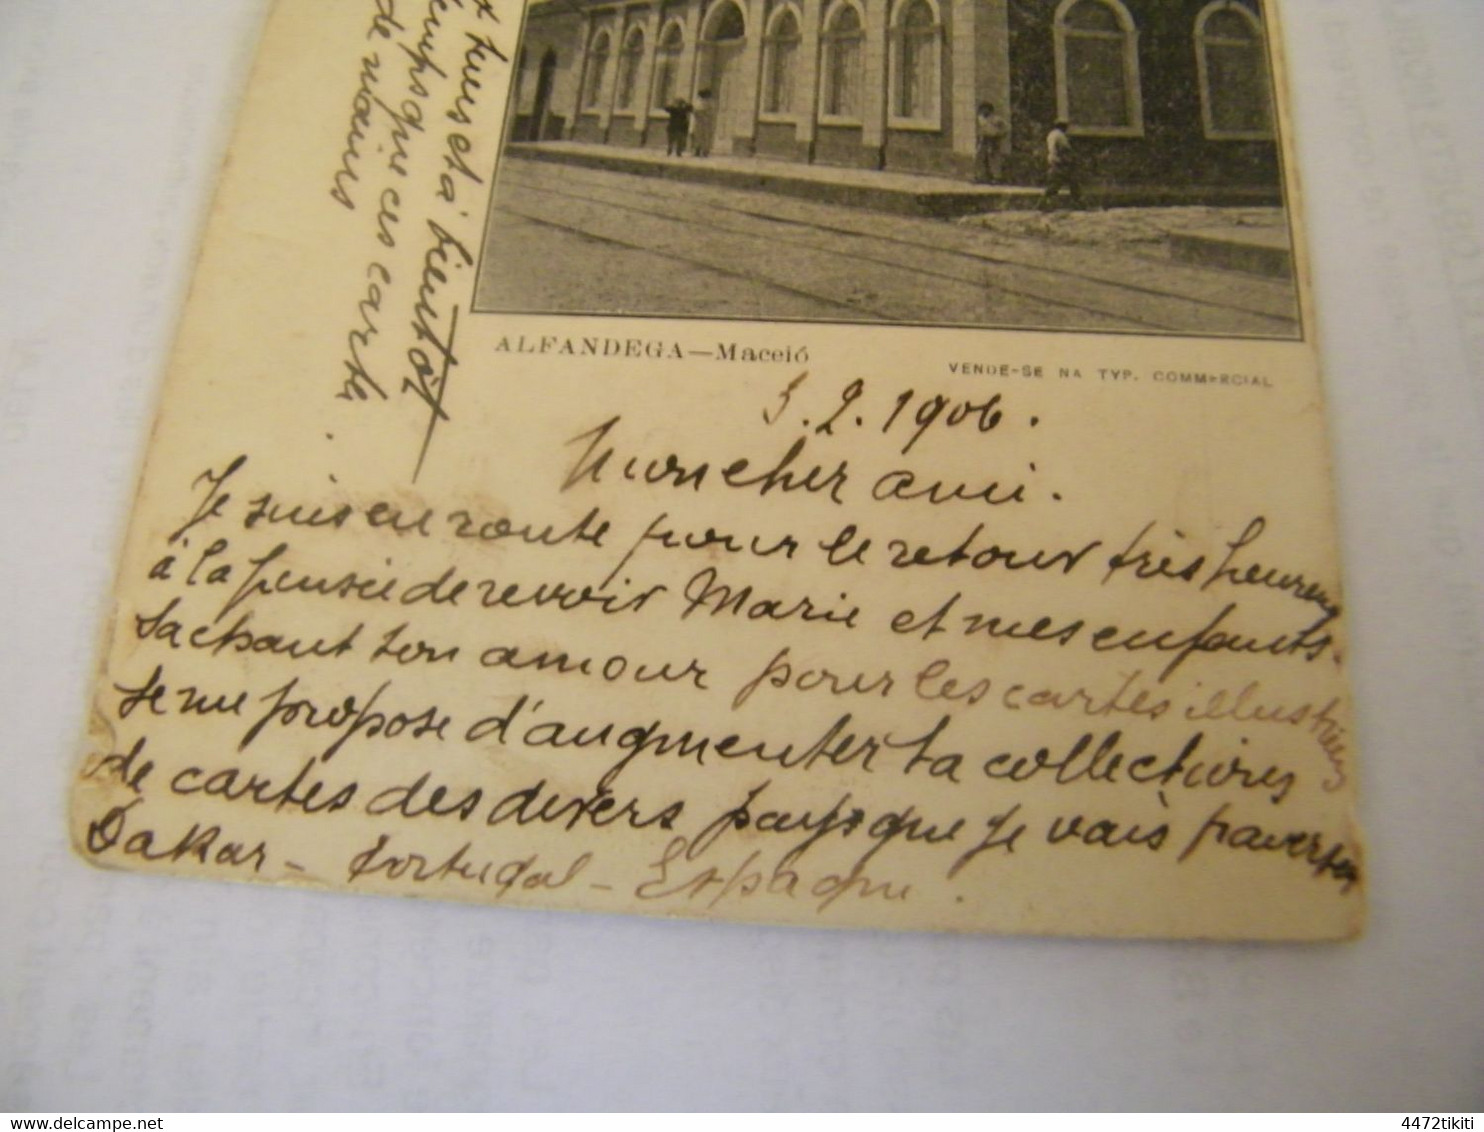 ALFANDEGA—Maceió
VENDE-SE NA TYP. COMMERCIAL
3.2.1906.
Mon cher ami.
Je suis en route pour le retour très heureux
à la pensée de revoir Marie et mes enfants.
Sachant ton amour pour les cartes illustrées
je me propose d'augmenter ta collections
de cartes des divers pays que je vais traverser
Dakar - Portugal - Espagne.
à bientôt
temps que ces carte
de mains
4472tikiti